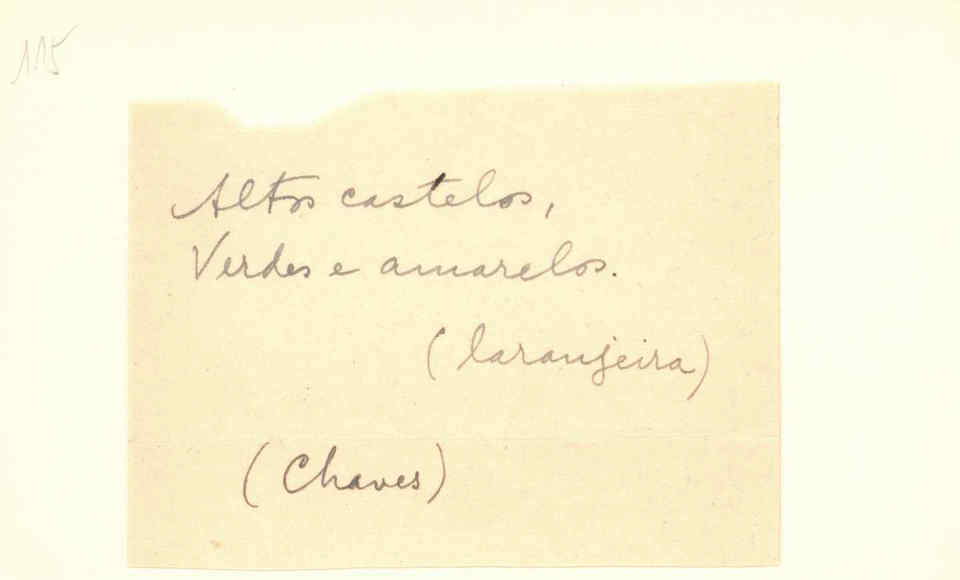 115
Altos castelos,
Verdes e amarelos.
(laranjeira)
(Chaves)